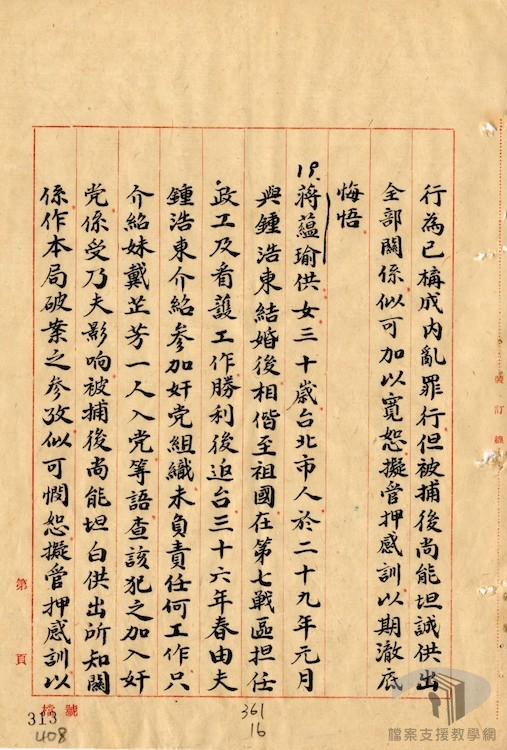 行為已構成內亂罪行但被捕後尚能坦誠供出
全部關係似可加以寬恕擬管押感訓以期澈底
悔悟
19.蔣蘊瑜供女三十歲台北市人於二十九年元月
與鍾浩東結婚後相偕至祖國在第七戰區担任
政工及看護工作勝利後返台三十六年春由夫
鍾浩東介紹参加奸党組織未負責任何工作只
介紹妹戴芷芳一人入党等語查該犯之加入奸
党係受乃夫影响被捕後尚能坦白供出所知關
係作本局破案之参攷似可憫恕擬管押感訓以
裝訂線
第 頁
檔號
313
408
361
16
檔案支援教學網